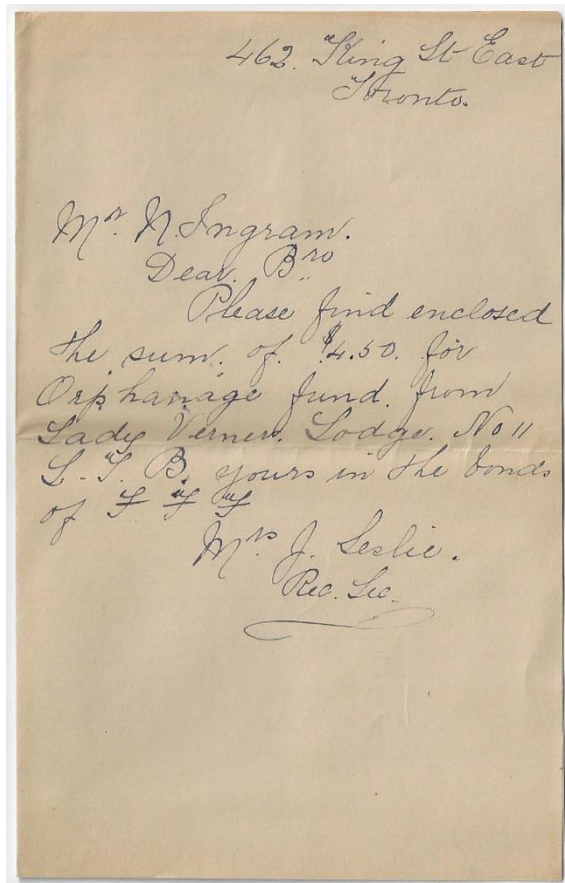 462. King St East
Toronto.
Mrs. N. Ingram.
Dear. Bro
Please find enclosed
the sum. of. $4.50. for
Orphanage fund. from
Lady Verner. Lodge. No 11
L. T. B. yours in the bonds
of F F F
Mrs J. Leslie.
Rec. Sec.